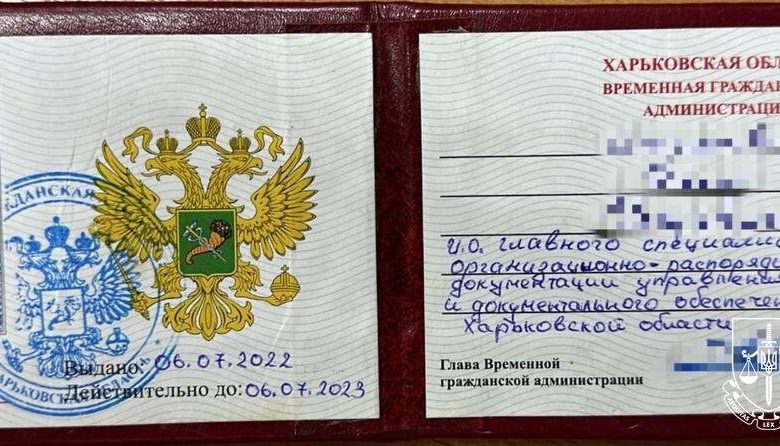 Выдано: 06.07.2022
Действительно до: 06.07.2023
ХАРЬКОВСКАЯ ОБЛ
ВРЕМЕННАЯ ГРАЖДАН
АДМИНИСТРАЦИ
и.о. главного специали
организационно-распоряди
документации управлени
и документального обеспече
Харьковской области
Глава Временной
гражданской администрации
LEX